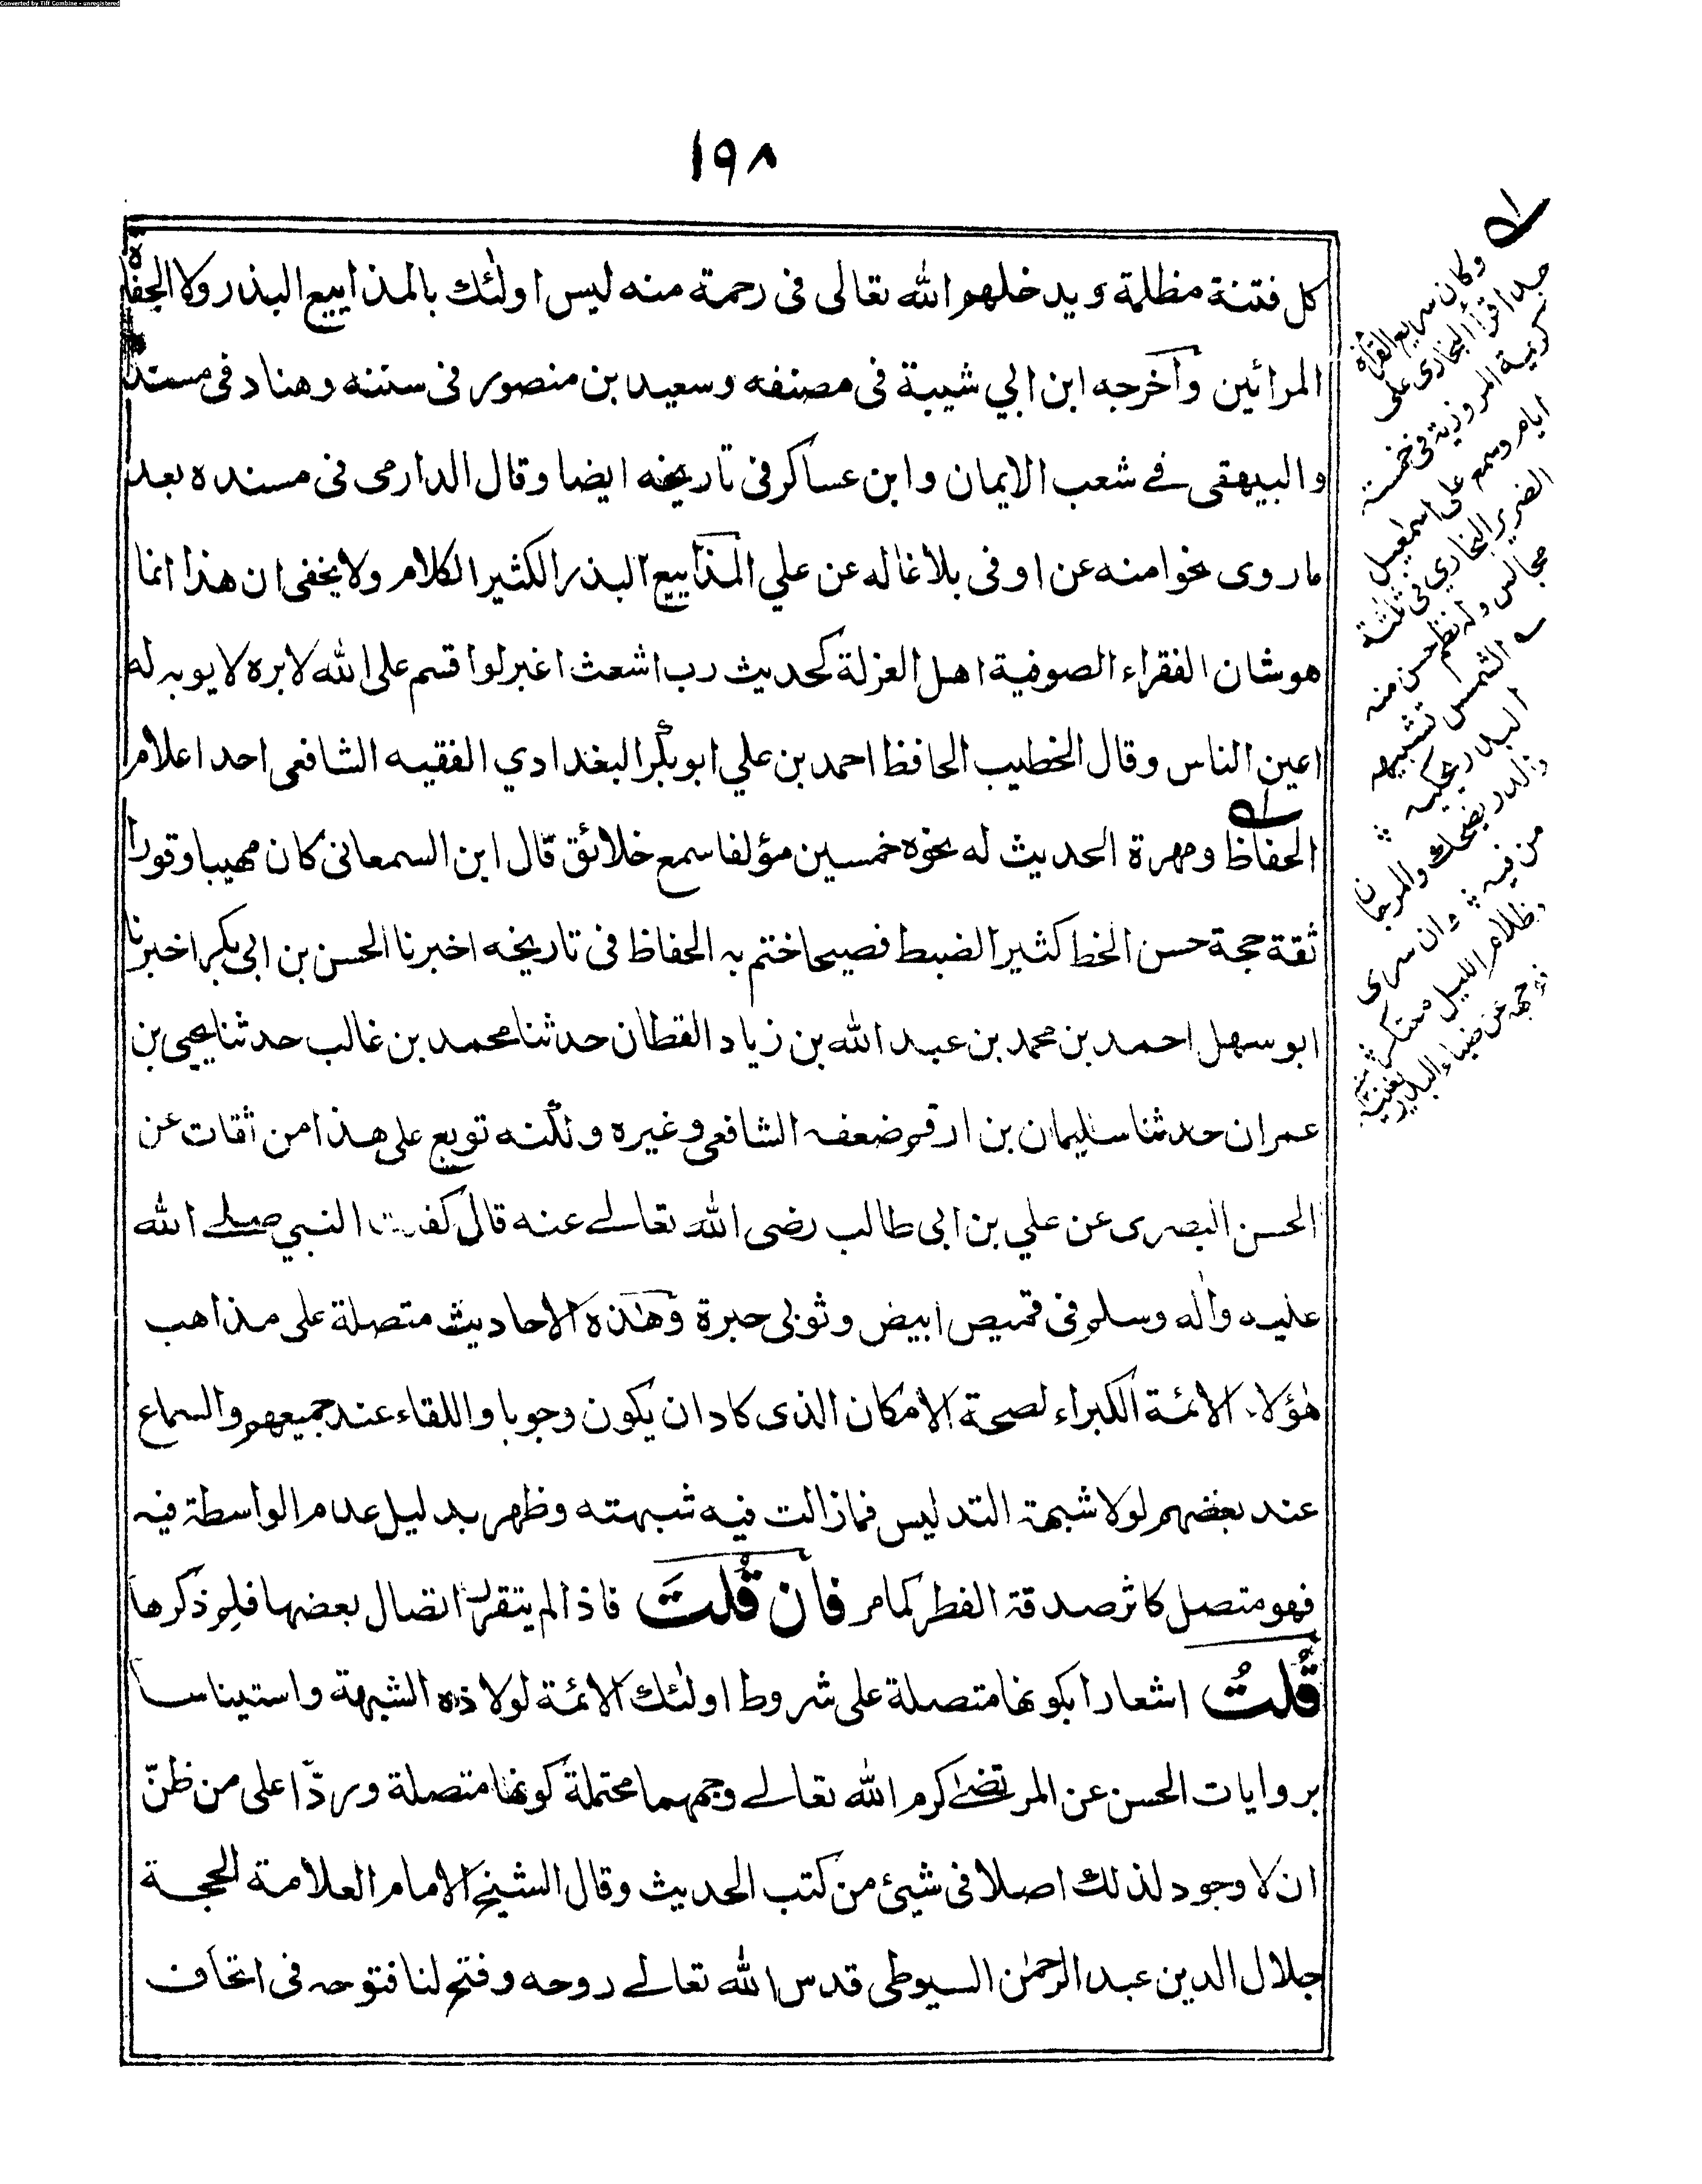 Converted by Tiff Combine - unregistered
١٩٨
كل فتنة مظلمة ويدخلهم الله تعالى فى رحمة منه ليس اولئك بالمذاييع البذر ولا الجفاة
المرائين وآخرجه ابن ابي شيبة فى مصنفه وسعيد بن منصور فى سننه وهناد فى مسنده
والبيهقى فے شعب الايمان وابن عساكر فى تاريخه ايضا وقال الدارمى فى مسنده بعد
ماروى نحوا منه عن اوفى بلاغاله عن علي المذاييع البذر الكثير الكلام ولا يخفى ان هذا انما
هو شان الفقراء الصوفية اهل العزلة كحديث رب اشعث اغبر لو اقسم على الله لابره لا يوبه له
اعين الناس وقال الخطيب الحافظ احمد بن علي ابوبكر البغدادي الفقيه الشافعى احد اعلام
الحفاظ ومهرة الحديث له نحوه خمسين مؤلفا سمع خلائق قال ابن السمعانى كان مهيبا وقورا
ثقة حجة حسن الخط كثير الضبط فصيحا ختم به الحفاظ فى تاريخه اخبرنا الحسن بن ابى بكر اخبرنا
ابو سهل احمد بن محمد بن عبد الله بن زياد القطان حدثنا محمد بن غالب حدثنا يحيى بن
عمران حدثنا سليمان بن ارقم ضعفه الشافعى وغيره ولكنه توبع على هذا من ثقات عن
الحسن البصرى عن علي بن ابى طالب رضى الله تعالے عنه قال كفنت النبي صلے الله
عليه واله وسلم فى قميص ابيض وثوبى حبرة وهذه الاحاديث متصلة على مذاهب
هؤلاء الائمة الكبراء لصحة الامكان الذى كاد ان يكون وجوبا واللقاء عند جميعهم والسماع
عند بعضهم لولا شبهة التدليس فمازالت فيه شبهته وظهر بدليل عدم الواسطة فيه
فهو متصل كاثر صدقة الفطر كمامر فان قُلتَ فاذا لم يتقرر اتصال بعضها فلم ذكرها
قُلتُ اشعارا بكونها متصلة على شروط اولئك الائمة لولا ذه الشبهة واستيناسا
بروايات الحسن عن المرتضےٰ كرم الله تعالے وجههما محتملة كونها متصلة وردّا على من ظنّ
ان لا وجود لذلك اصلا فى شيئ من كتب الحديث وقال الشيخ الامام العلامة الحجة
جلال الدين عبد الرحمٰن السيوطى قدس الله تعالے روحه وفتح لنا فتوحه فى اتحاف
وكان سريع القرأة
جدا قرأ البخارى على
كريمة المروزية فى خمسة
ايام وسمع على اسمٰعيل
الضرير البخاري فى ثلثة
مجالس وله نظم حسن منه
الشمس تشبهه
البدر يحكيه
والدر يضحك والمرجان
من فيه وان سرى
وظلام الليل معتكر
وجهه عن ضياء البدر يغنيه